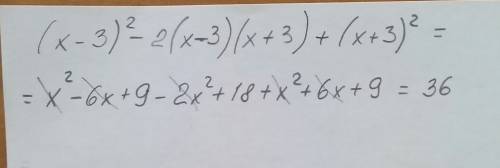 (x-3)²-2(x-3)(x+3)+(x+3)²=
=x²-6x+9-2x²+18+x²+6x+9=36